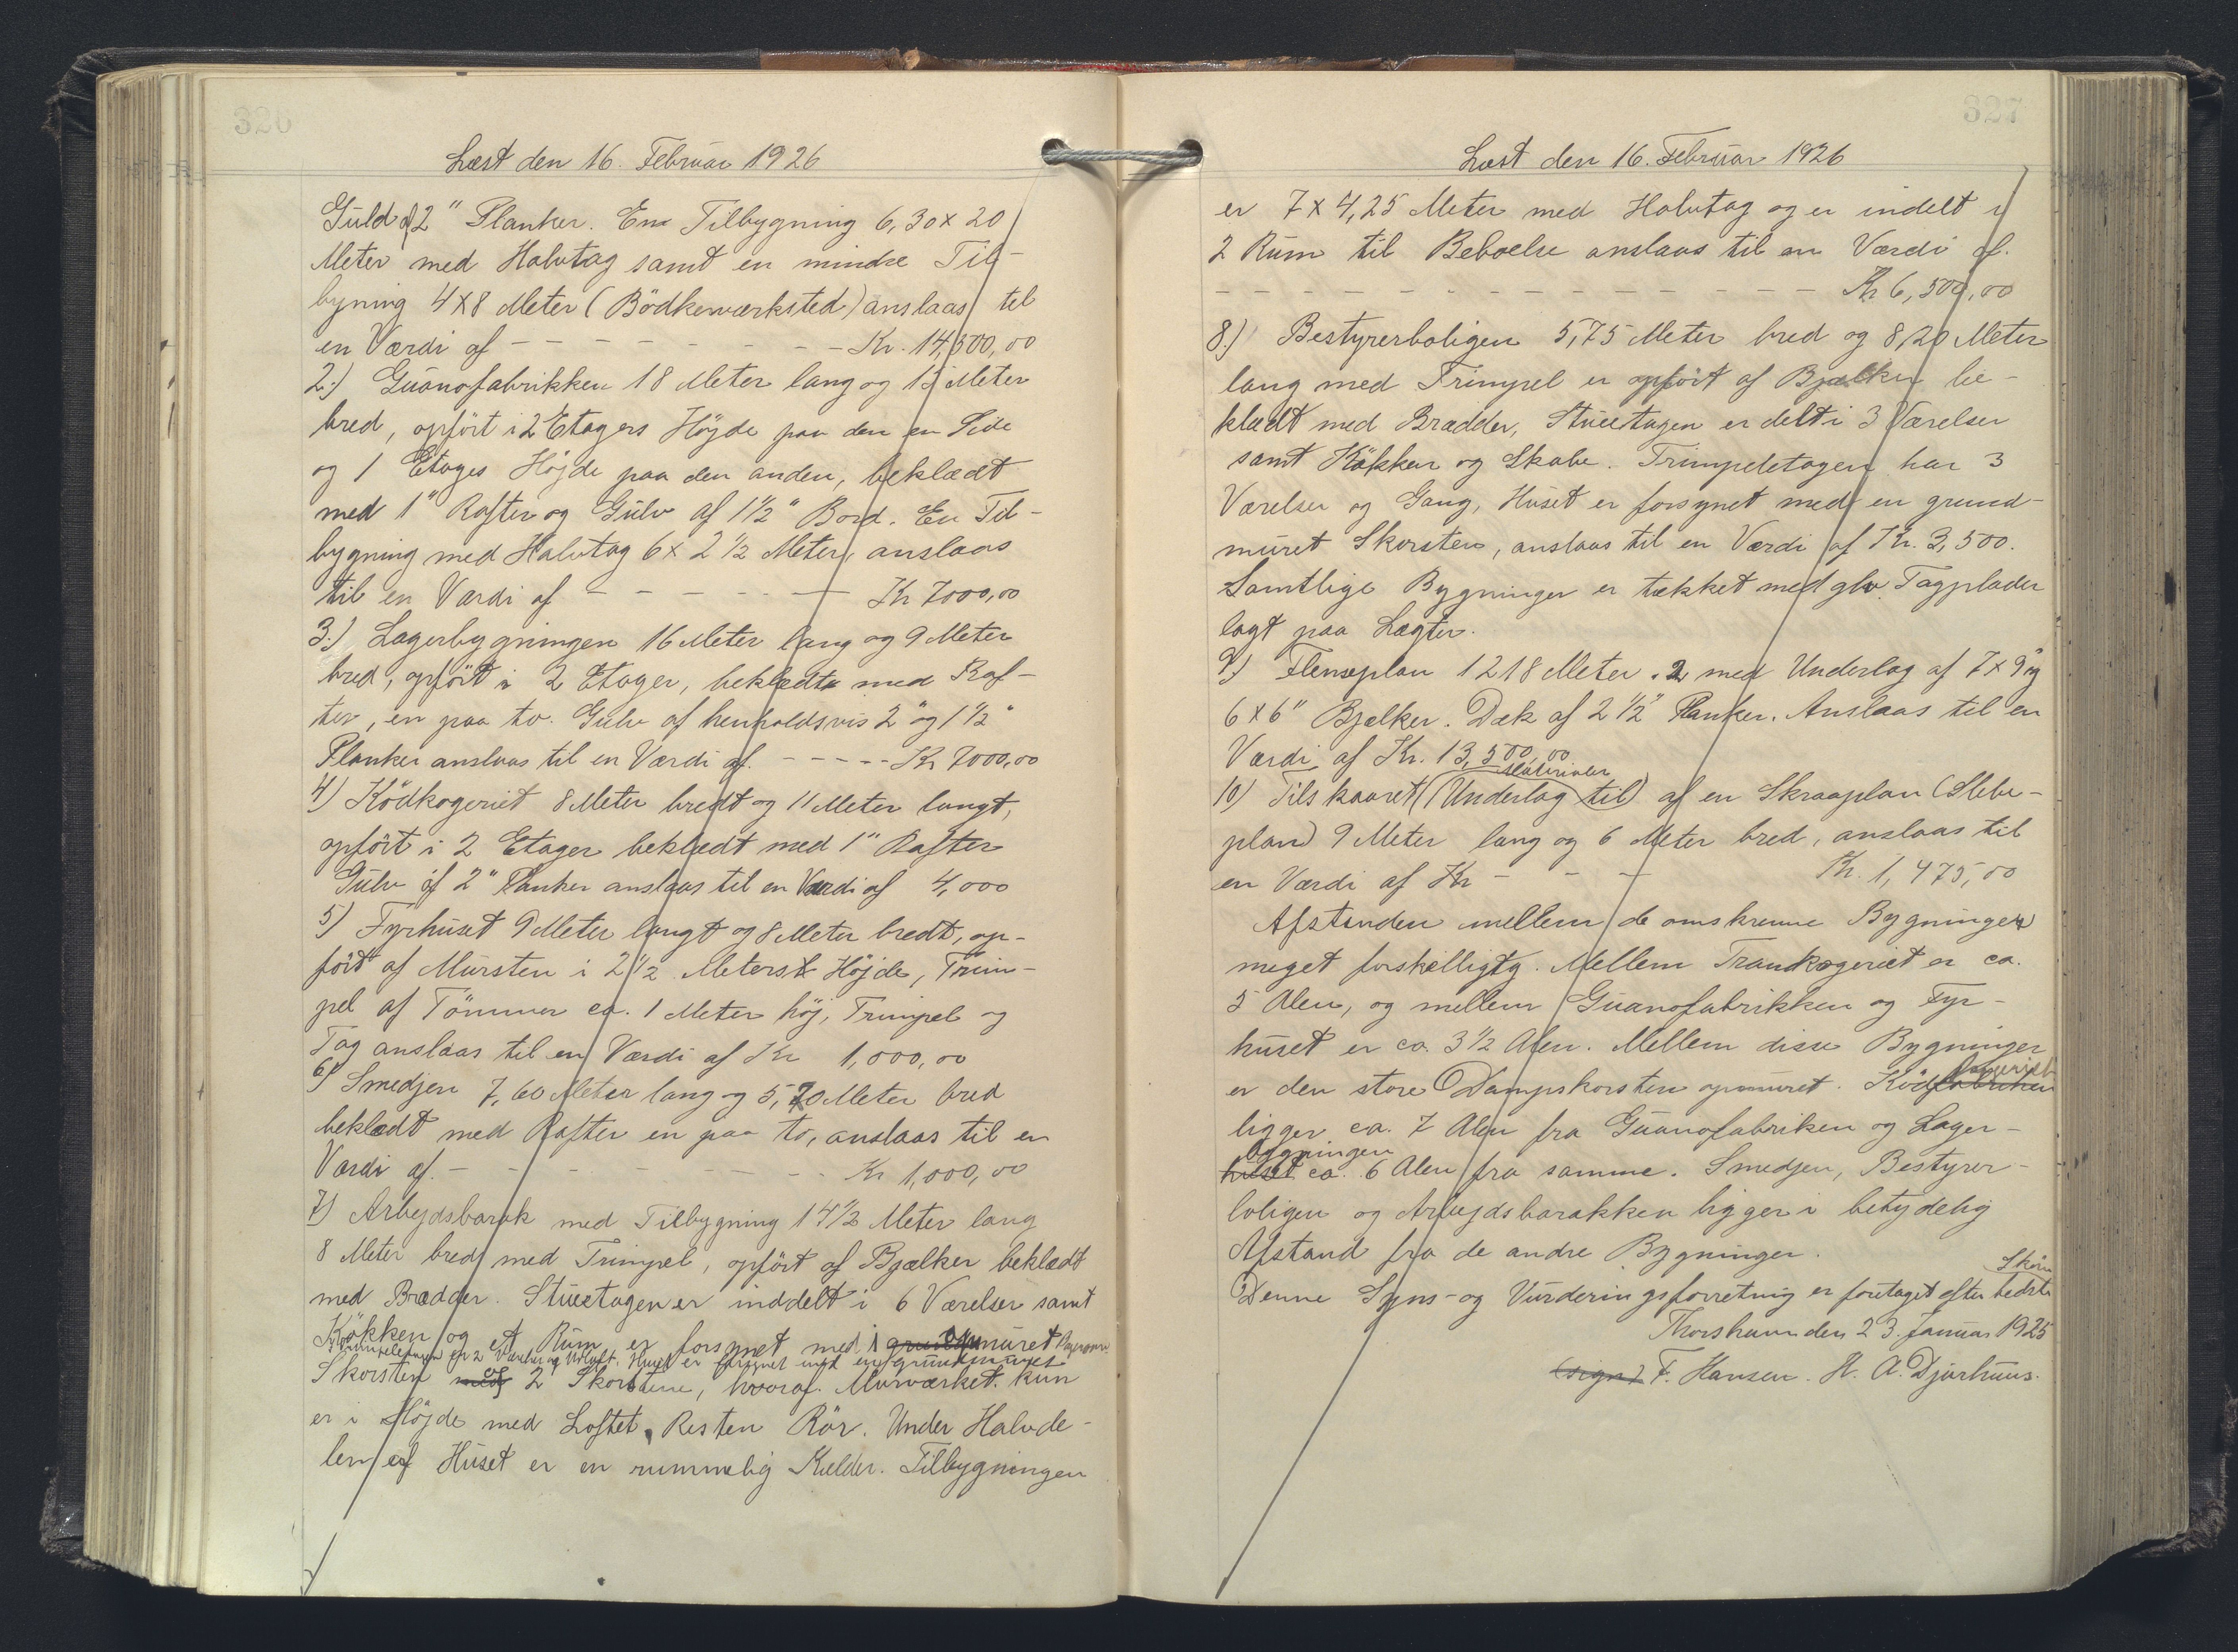 326
Læst den 16. Februar 1926
Guld af 2" Planker. En Tilbygning 6,30 x 20
Meter med Halvtag samt en mindre Til-
bygning 4 x 8 Meter (Bödkerværksted) anslaas til
en Værdi af - - - - - - - - - Kr. 14,500,00
2.) Guanofabrikken 18 Meter lang og 12 Meter
bred, opført i 2 Etagers Höjde paa den en Side
og 1 Etages Höjde paa den anden, beklædt
med 1" Rafter og Gulv af 1 1/2" Bord. En Til-
bygning med Halvtag 6 x 2 1/2 Meter, anslaas
til en Værdi af - - - - - - Kr 7000,00
3.) Lagerbygningen 16 Meter lang og 9 Meter
bred, opfört i 2 Etager, beklædt med Raf-
ter, en paa to. Gulv af henholdsvis 2" og 1 1/2"
Planker anslaas til en Værdi af. - - - - - Kr 7000,00
4) Ködkogeriet 8 Meter bredt og 11 Meter langt,
opfört i 2 Etager beklædt med 1" Rafter
Gulv af 2" Planker anslaas til en Værdi af 4,000
5) Fyrhuset 9 Meter langt og 8 Meter bredt, op-
fört af Mursten i 2 1/2 Meters Höjde, Trim-
pel af Tömmer ca. 1 Meter höj, Trimpel og
Tag anslaas til en Værdi af Kr 1,000,00
6) Smedjen 7,60 Meter lang og 5,70 Meter bred
beklædt med Rafter en paa to, anslaas til en
Værdi af. - - - - - - - - Kr 1,000,00
7) Arbejdsbarak med Tilbygning 14 1/2 Meter lang
8 Meter bred med Trimpel, opfört af Bjælker beklædt
med Brædder. Stueetagen er inddelt i 6 Værelser samt
Kökken og et Rum er forsynet med 1 grundmuret
Trimpeletagen er 2 Værelser og Udluft. Huset er forsynet med en grundmuret
Skorsten og 2 Skorstene, hvoraf Murværket kun
er i Höjde med Loftet, Resten Rör. Under Halvde-
len af Huset er en rummelig Kælder. Tilbygningen
327
Læst den 16. Februar 1926
er 7 x 4,25 Meter med Halvtag og er indelt i
2 Rum til Beboelse anslaas til en Værdi af.
- - - - - - - - - - - - - - Kr 6,500,00
8.) Bestyrerboligen 5,75 Meter bred og 8,20 Meter
lang med Trimpel er opfört af Bjælker be-
klædt med Brædder, Stueetagen er delt i 3 Værelser
samt Kökken og Skabe. Trimpeletagen har 3
Værelser og Gang, Huset er forsynet med en grund-
muret Skorsten, anslaas til en Værdi af Kr. 3,500.
Samtlige Bygninger er tækket med glv. Tagplader
lagt paa Lægter.
9) Flenseplan 1218 Meter 2 med Underlag af 7 x 9" og
6 x 6" Bjælker. Dæk af 2 1/2" Planker. Anslaas til en
Værdi af Kr. 13,500,00
Materialer
10) Tilskaaret (Underlag til) af en Skraaplan (Slæbe-
plan) 9 Meter lang og 6 Meter bred, anslaas til
en Værdi af Kr - - - Kr. 1,475,00
Afstanden mellem de omskrevne Bygninger
meget forskelligtg. Mellem Trankogeriet er ca.
5 Alen, og mellem Guanofabrikken og Fyr-
huset er ca. 3 1/2 Alen. Mellem disse Bygninger
er den store Dampskorsten opmuret. Ködfabriken
kogeriet
ligger ca. 7 Alen fra Guanofabriken og Lager-
bygningen
huset ca. 6 Alen fra samme. Smedjen, Bestyrer-
boligen og Arbejdsbarakken ligger i betydelig
Afstand fra de andre Bygninger.
Denne Syns- og Vurderingsforretning er foretaget efter bedste
Skön
Thorshavn den 23. Januar 1925
(sign) F. Hansen. H. A. Djurhuus.